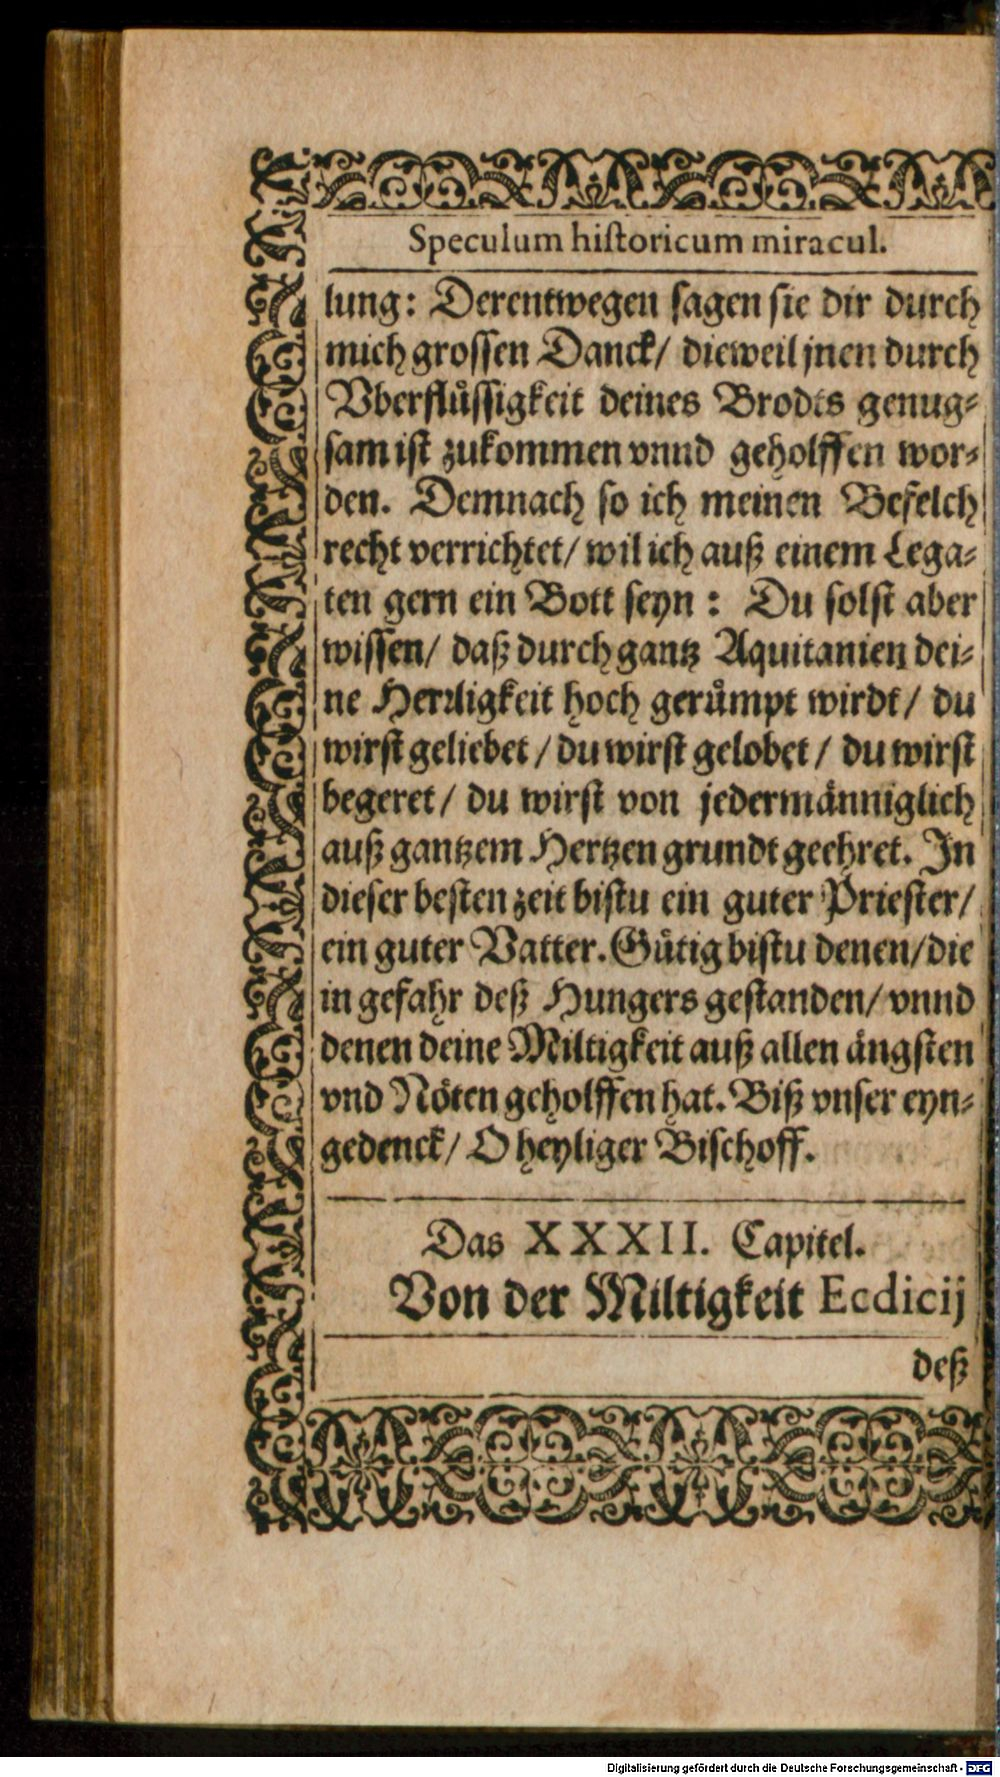 Speculum hiſtoricum miracul.
lung: Derentwegen ſagen ſie dir durch
mich groſſen Danck/ dieweil jnen durch
Vberfluͤſſigkeit deines Brodts genug⸗
ſam iſt zukommen vnnd geholffen wor⸗
den. Demnach ſo ich meinen Befelch
recht verrichtet/ wil ich auß einem Lega⸗
ten gern ein Bott ſeyn: Du ſolſt aber
wiſſen/ daß durch gantz Aquitanien dei⸗
ne Herꝛligkeit hoch geruͤmpt wirdt/ du
wirſt geliebet/ du wirſt gelobet/ du wirſt
begeret/ du wirſt von jedermaͤnniglich
auß gantzem Hertzen grundt geehret. In
dieſer beſten zeit biſtu ein guter Prieſter/
ein guter Vatter. Guͤtig biſtu denen/ die
in gefahr deß Hungers geſtanden/ vnnd
denen deine Miltigkeit auß allen aͤngſten
vnd Noͤten geholffen hat. Biß vnſer eyn⸗
gedenck/ O heyliger Biſchoff.
Das XXXII. Capitel.
Von der Miltigkeit Ecdicij
deß
Digitalisierung gefördert durch die Deutsche Forschungsgemeinschaft - DFG